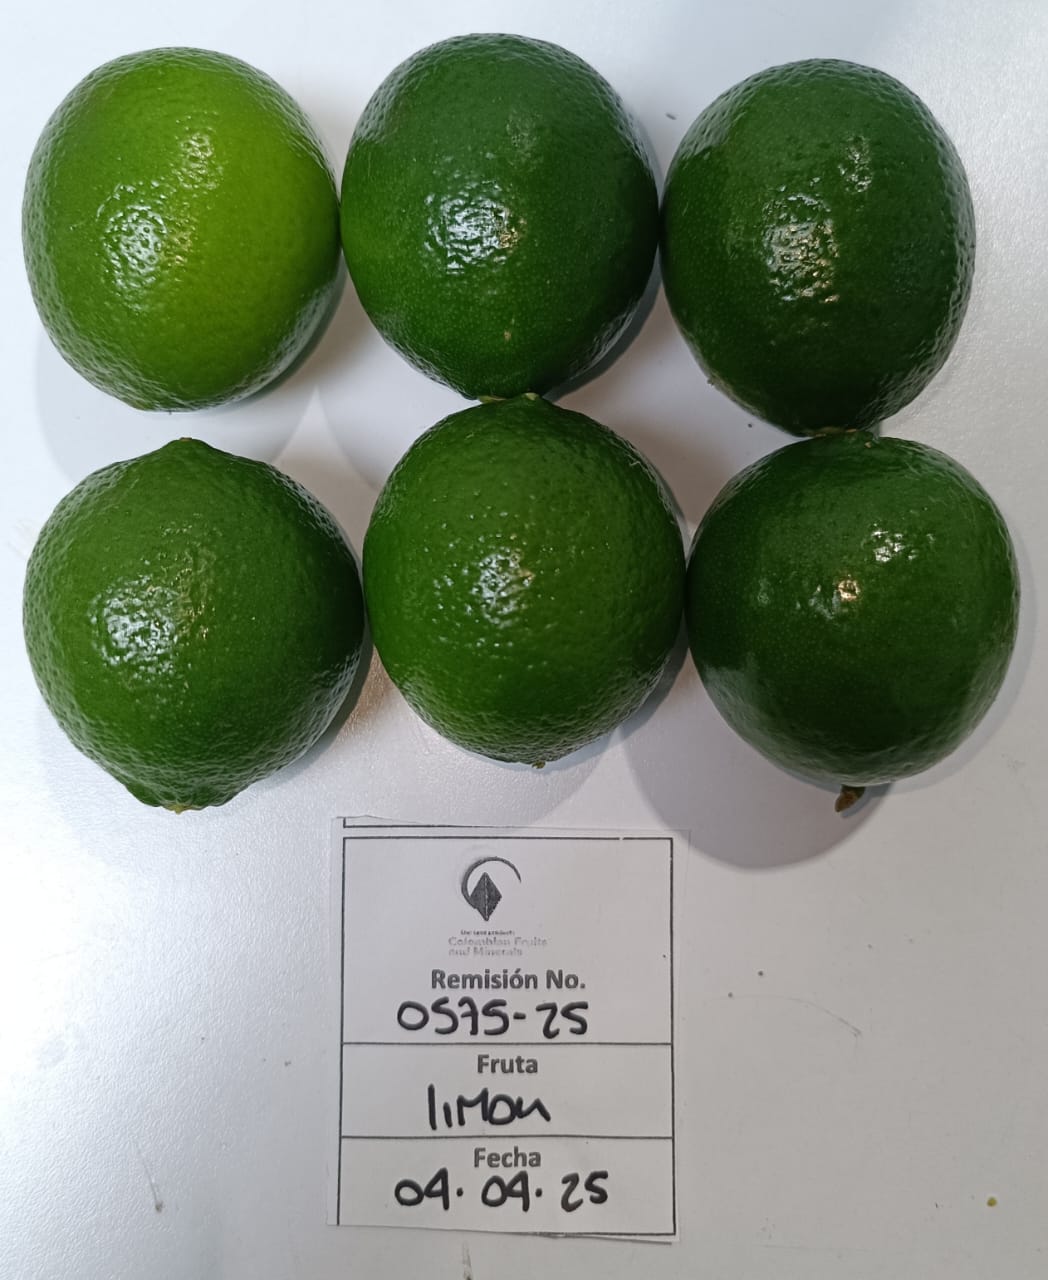 Colombian Fruits
and Minerals
Remisión No.
0575-25
Fruta
limon
Fecha
04.04.25